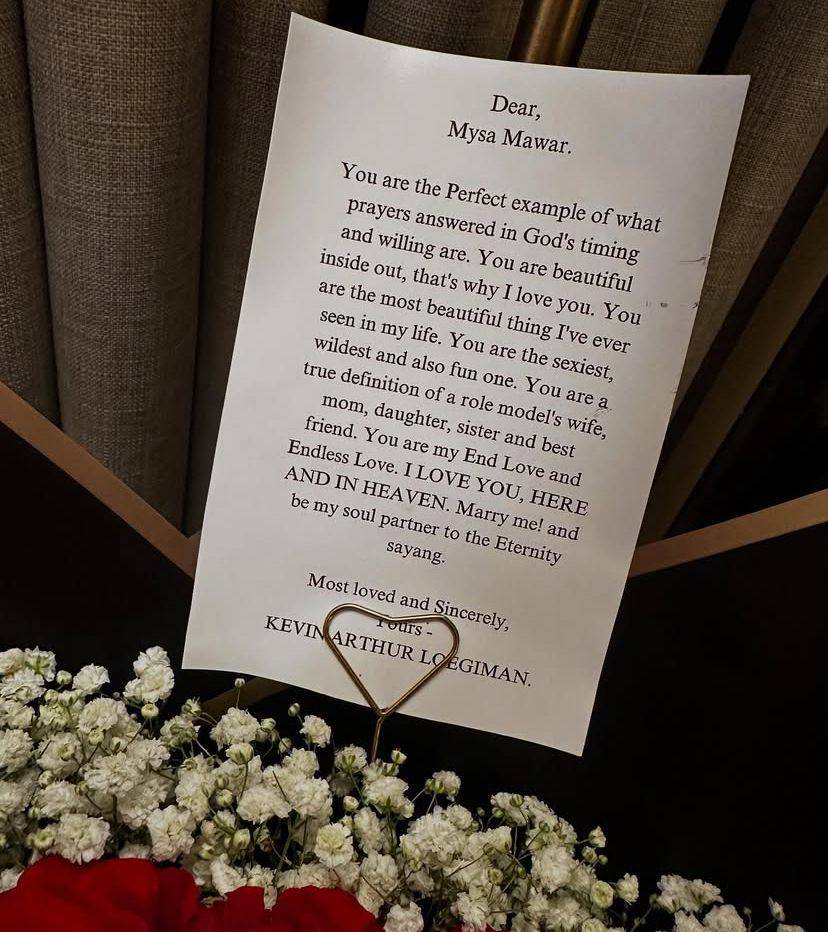 Dear,
Mysa Mawar.
You are the Perfect example of what
prayers answered in God's timing
and willing are. You are beautiful
inside out, that's why I love you. You
are the most beautiful thing I've ever
seen in my life. You are the sexiest,
wildest and also fun one. You are a
true definition of a role model's wife,
mom, daughter, sister and best
friend. You are my End Love and
Endless Love. I LOVE YOU, HERE
AND IN HEAVEN. Marry me! and
be my soul partner to the Eternity
sayang.
Most loved and Sincerely,
Yours -
KEVIN ARTHUR LOEGIMAN.